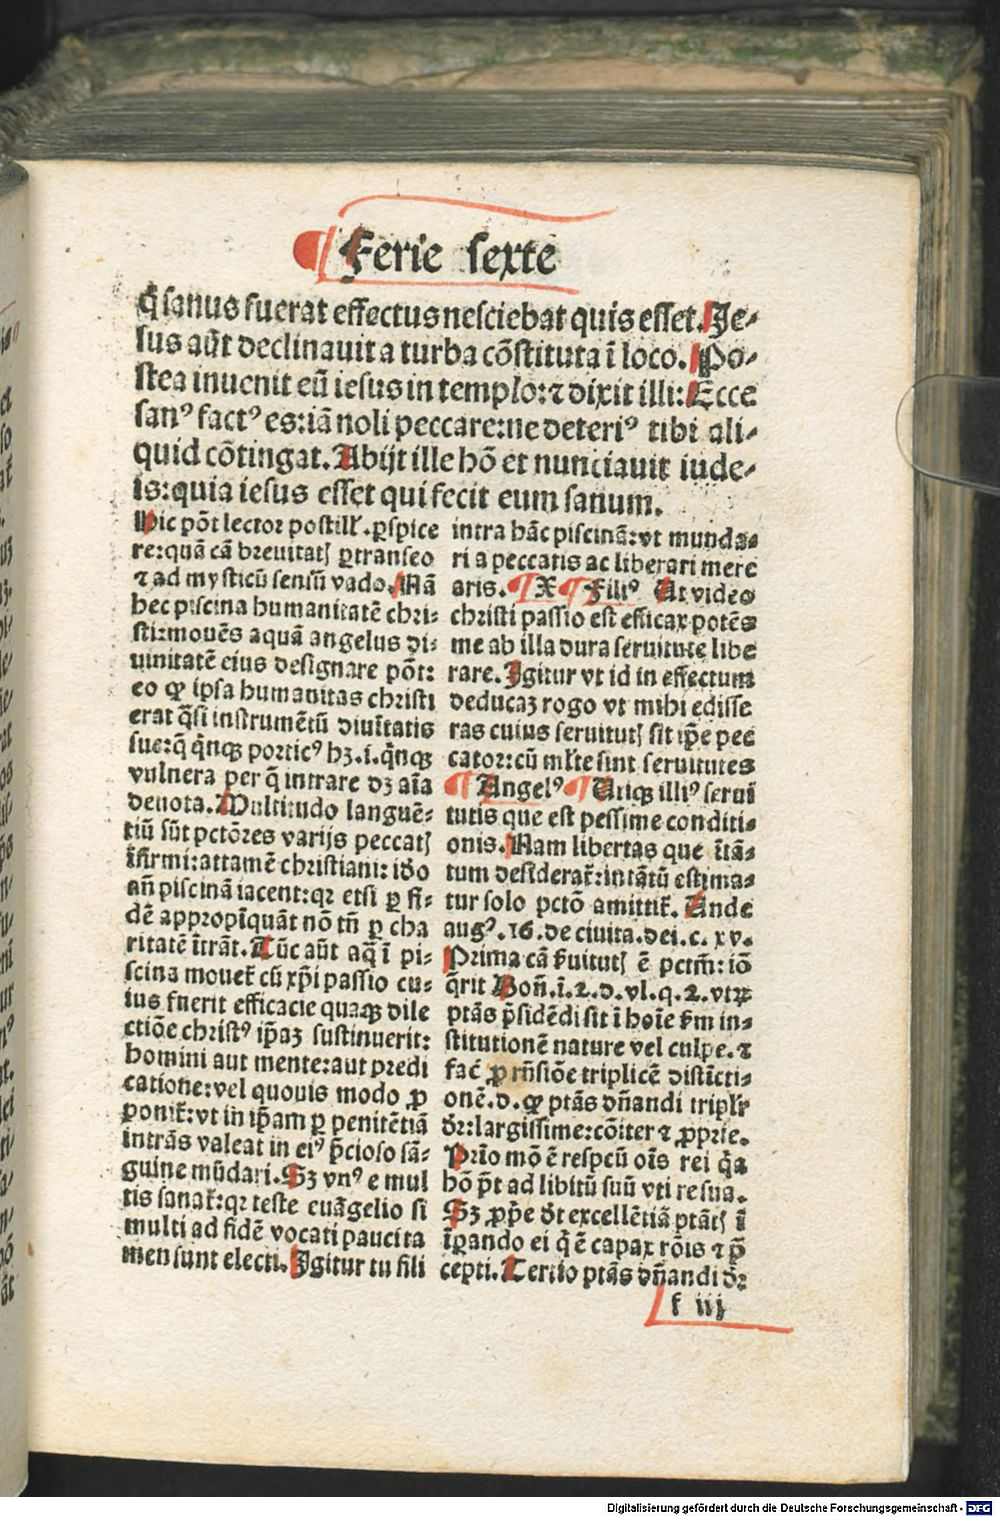 Ferie sexte
q̄ sanus fuerat effectus nesciebat quis esset. Je⸗
sus aūt declinauit a turba cōstituta ī loco. Po⸗
stea inuenit eū iesus in templo: ⁊ dixit illi: Ecce
sanꝰ factꝰ es: iā noli peccare: ne deteriꝰ tibi ali⸗
quid cōtingat. Abijt ille hō et nunciauit iude⸗
is: quia iesus esset qui fecit eum sanum.
Hic pōt lector postill'. ꝑspice
re: quā cā breuitatꝭ ꝑtranseo
⁊ ad mysticū sensū vado. Nā
hec piscina humanitatē chri⸗
sti: mouēs aquā angelus di⸗
uinitatē eius designare pōt:
eo ꝙ ipsa humanitas christi
erat q̄si instrumētū diuītatis
sue: q̄ q̄nqꝫ porticꝰ hꝫ .i. q̄nqꝫ
vulnera per q̄ intrare dꝫ aīa
deuota. Multitudo languē⸗
tiū sūt pctōres varijs peccatꝭ
īfirmi: attamē christiani: idō
añ piscinā iacent: qꝛ etsi ꝑ fi⸗
dē appropīquāt nō tñ ꝑ cha
ritatē ītrāt. Tūc aūt aq̄ ī pi⸗
scina mouet̄ cū xp̄i passio cu⸗
ius fuerit efficacie quaqꝫ dile
ctiōe christꝰ ip̄aꝫ sustinuerit:
homini aut mente: aut predi
catione: vel quouis modo ꝓ
ponit̄: vt in ip̄am ꝑ penitētiā
intrās valeat in eiꝰ p̄cioso sā⸗
guine mūdari. Sꝫ vnꝰ e mul
tis sanat̄: qꝛ teste euāgelio si
multi ad fidē vocati pauci ta
men sunt electi. Igitur tu fili
intra hāc piscinā: vt munda⸗
ri a peccatis ac liberari mere
aris. ¶ X ¶ Filiꝰ Ut video
christi passio est efficax potēs
me ab illa dura seruitute libe
rare. Igitur vt id in effectum
deducaꝫ rogo vt mihi edisse
ras cuius seruitutꝭ sit ip̄e pec
cator: cū ml'te sint seruitutes
¶ Angelꝰ ¶ Utiqꝫ illiꝰ serui
tutis que est pessime conditi⸗
onis. Nam libertas que ītā⸗
tum desiderat̄: in tātū estima⸗
tur solo pctō amittit̄. Unde
augꝰ. 16. de ciuita. dei. c. xv.
Prima cā ẜuitutꝭ ē pctm̄: iō
q̄rit Boñ. ī. 2. d. vl. q. 2. vtꝝ
ptās p̄sidēdi sit ī hoīe ẜm in⸗
stitutionē nature vel culpe. ⁊
fac̄ ꝓ rn̄siōe triplicē distīcti⸗
onē. d. ꝙ ptās dn̄andi tripl'r
dr̄: largissime: cōiter ⁊ ꝓprie.
Prīo mō ē respcū oīs rei q̄a
hō p̄t ad libitū suū vti re sua.
Sꝫ ꝓp̄e dt excellētiā ptātꝭ ī
īꝑando ei q̄ ē capax rōis ⁊ p̄
cepti. Tertio ptās dn̄andi dr̄
f iij
Digitalisierung gefördert durch die Deutsche Forschungsgemeinschaft - DFG